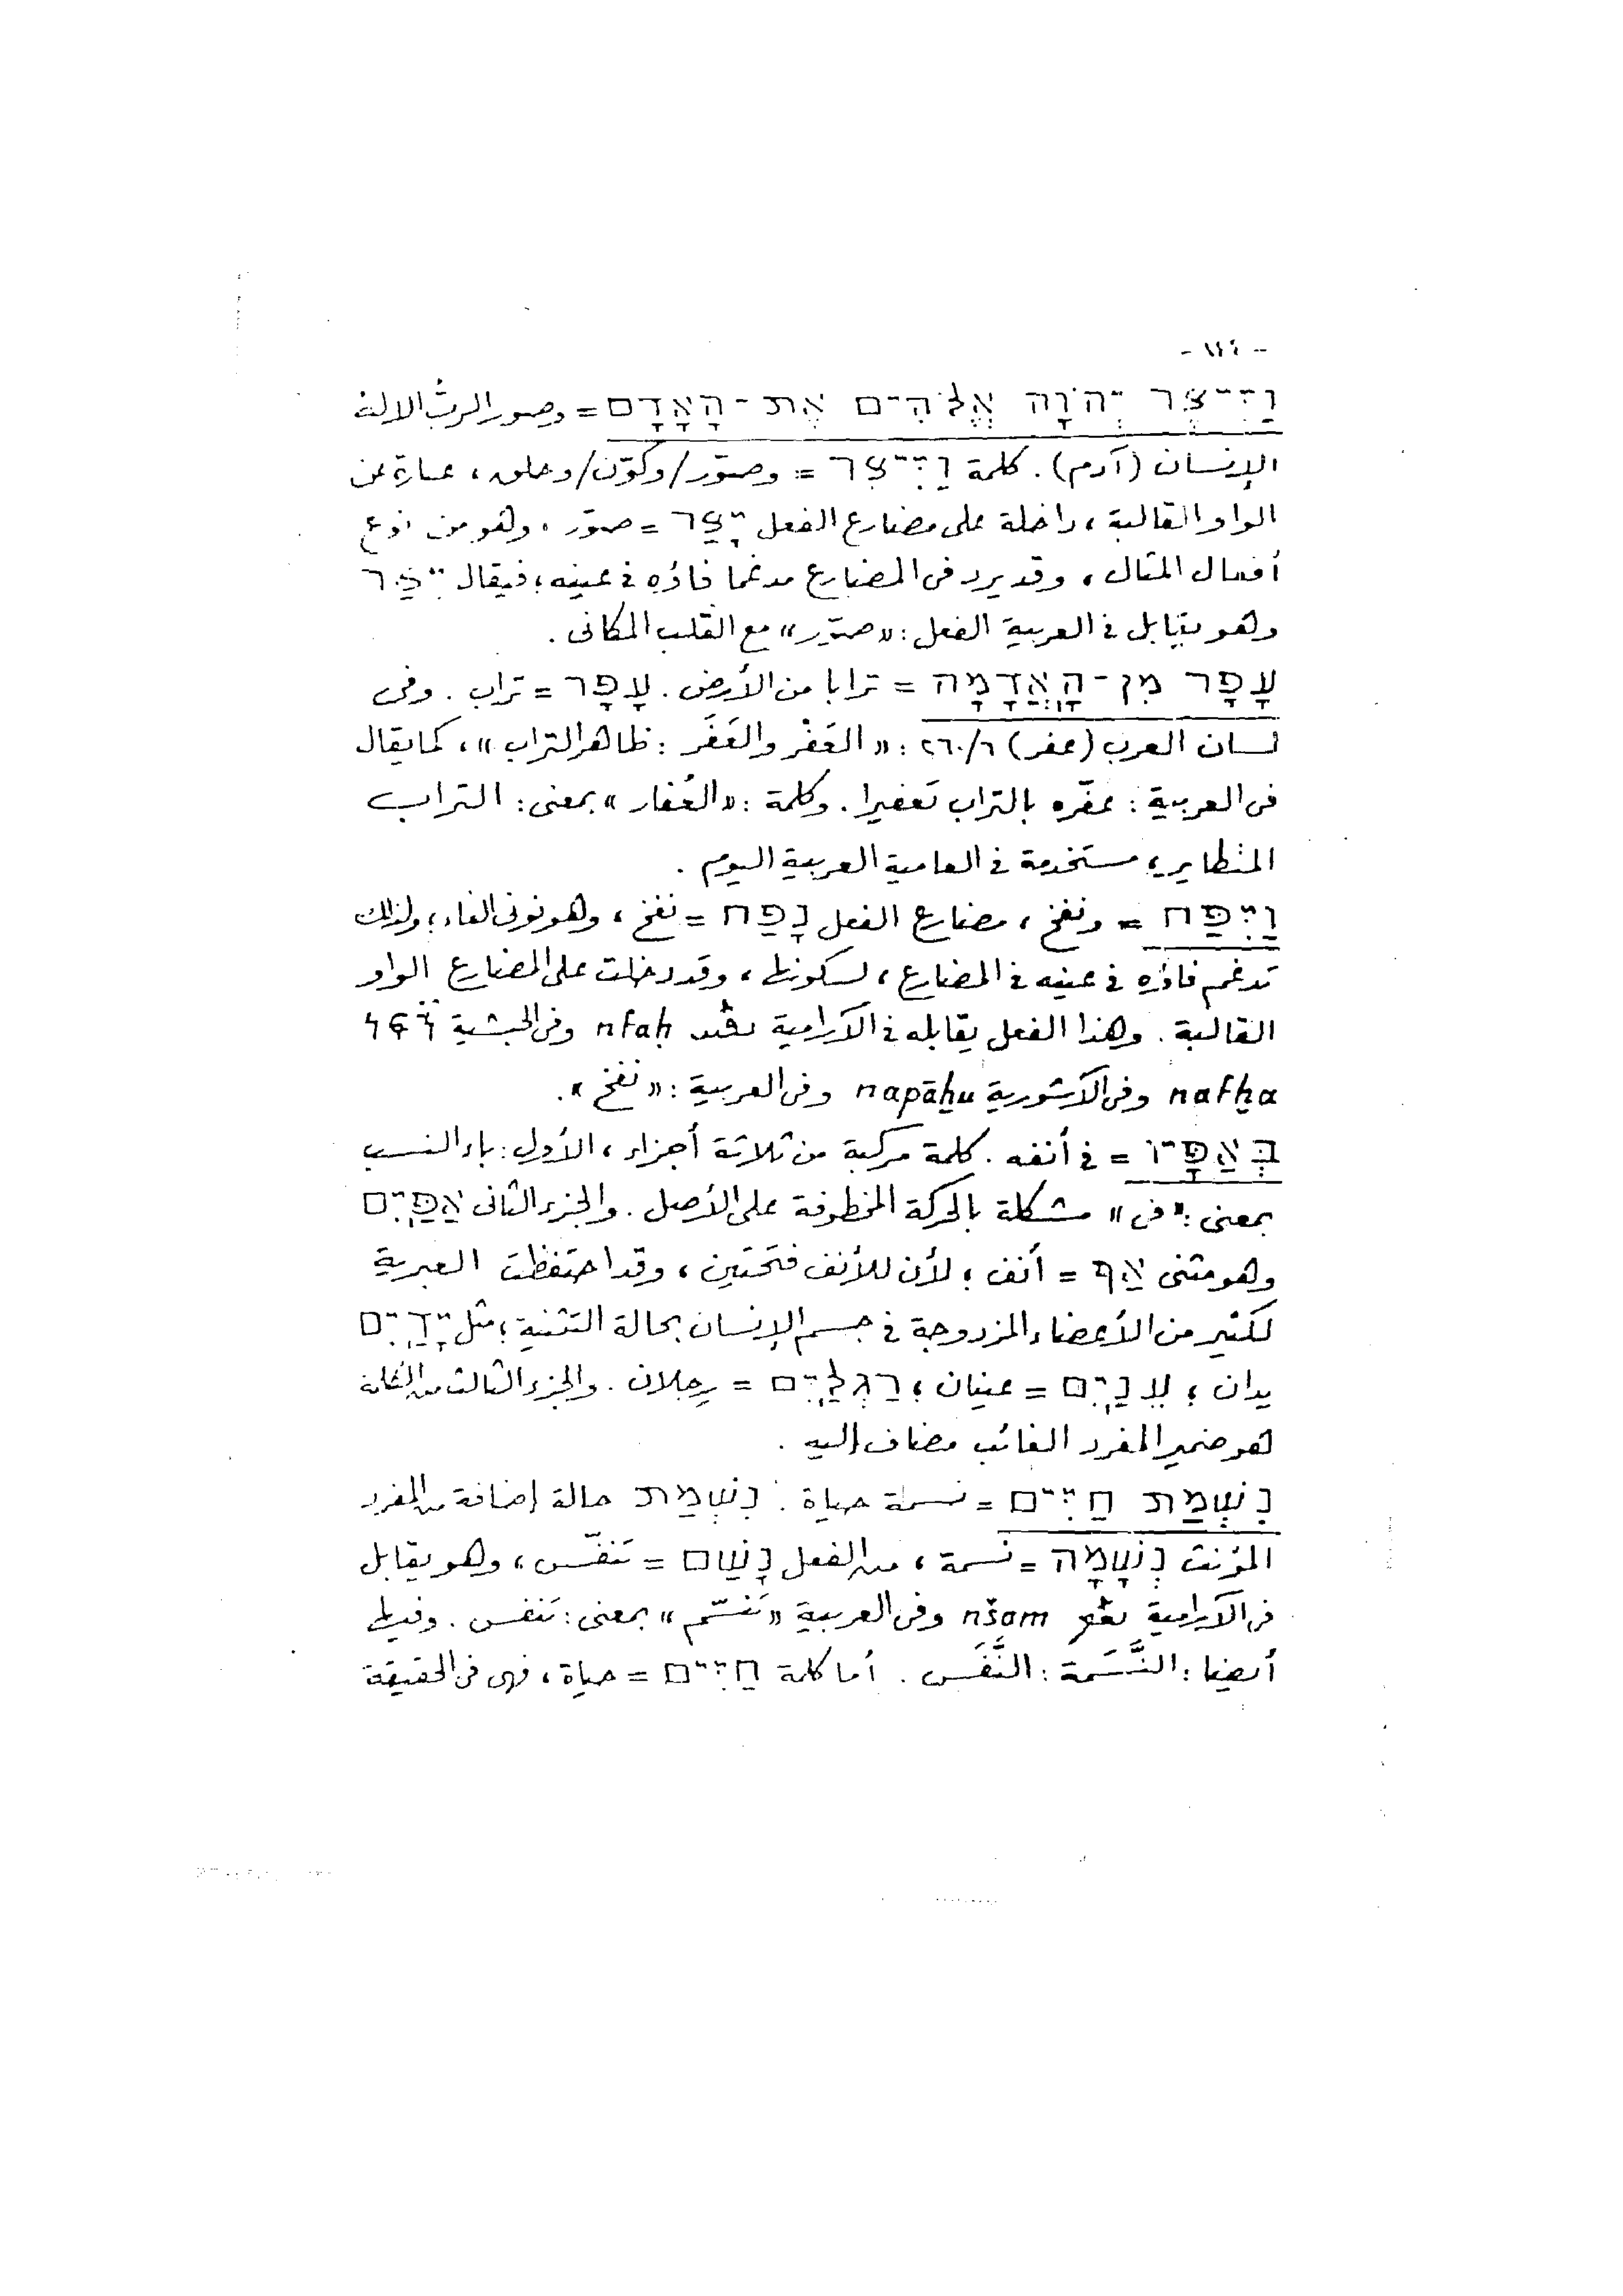 - ١١٤ -
וַיִּיצֶר יְהֹוָה אֱלֹהִים אֶת-הָאָדָם = وصور الربُّ الإله
الإنسان (آدم). كلمة וַיִּיצֶר = وصوّر/وكوّن/وخلق، عبارة عن
الواو القالبة، داخلة على مضارع الفعل יָצַר = صوّر، وهو من نوع
أفعال المثال، وقد يرد فى المضارع مدغما فاؤه فى عينه؛ فيقال יִצֹּר
وهو يقابل فى العربية الفعل: «صوّر» مع القلب المكانى.
עָפָר מִן-הָאֲדָמָה = ترابا من الأرض. עָפָר = تراب. وفى
لسان العرب (عفر) ٢٦٠/٦: «العَفْر والعَفَر: ظاهر التراب»، كما يقال
فى العربية: عفّره بالتراب تَعفيرا. وكلمة: «العُفار» بمعنى: التراب
المتطاير، مستخدمة فى العامية العربية اليوم.
וַיִּפַּח = ونفخ، مضارع الفعل נָפַח = نفخ، وهو نونى الفاء؛ ولذلك
تدغم فاؤه فى عينه فى المضارع، لسكونها، وقد دخلت على المضارع الواو
القالبة. وهذا الفعل يقابله فى الآرامية nfaḥ وفى الحبشية
nafḫa وفى الآشورية napāḫu وفى العربية: «نفخ».
בְּאַפָּיו = فى أنفه. كلمة مركبة من ثلاثة أجزاء، الأول: باء النسب
بمعنى: «فى» مشكلة بالحركة المخطوفة على الأصل. والجزء الثانى אַפַּיִם
وهو مثنى אַף = أنف؛ لأن للأنف فتحتين، وقد احتفظت العبرية
لكثير من الأعضاء المزدوجة فى جسم الإنسان بحالة التثنية؛ مثل יָדַיִם
يدان؛ עֵינַיִם = عينان؛ רַגְלַיִם = رِجلان. والجزء الثالث من الكلمة
هو ضمير المفرد الغائب مضاف إليه.
נִשְׁמַת חַיִּים = نسمة حياة. נִשְׁמַת حالة إضافة من المفرد
المؤنث נְשָׁמָה = نسمة، من الفعل נָשַׁם = تَنفّس، وهو يقابل
فى الآرامية nšam وفى العربية «تَنسّم» بمعنى: تَنفس. وفيها
أيضا: النَّسَمة: النَّفَس. أما كلمة חַיִּים = حياة، فهى فى الحقيقة